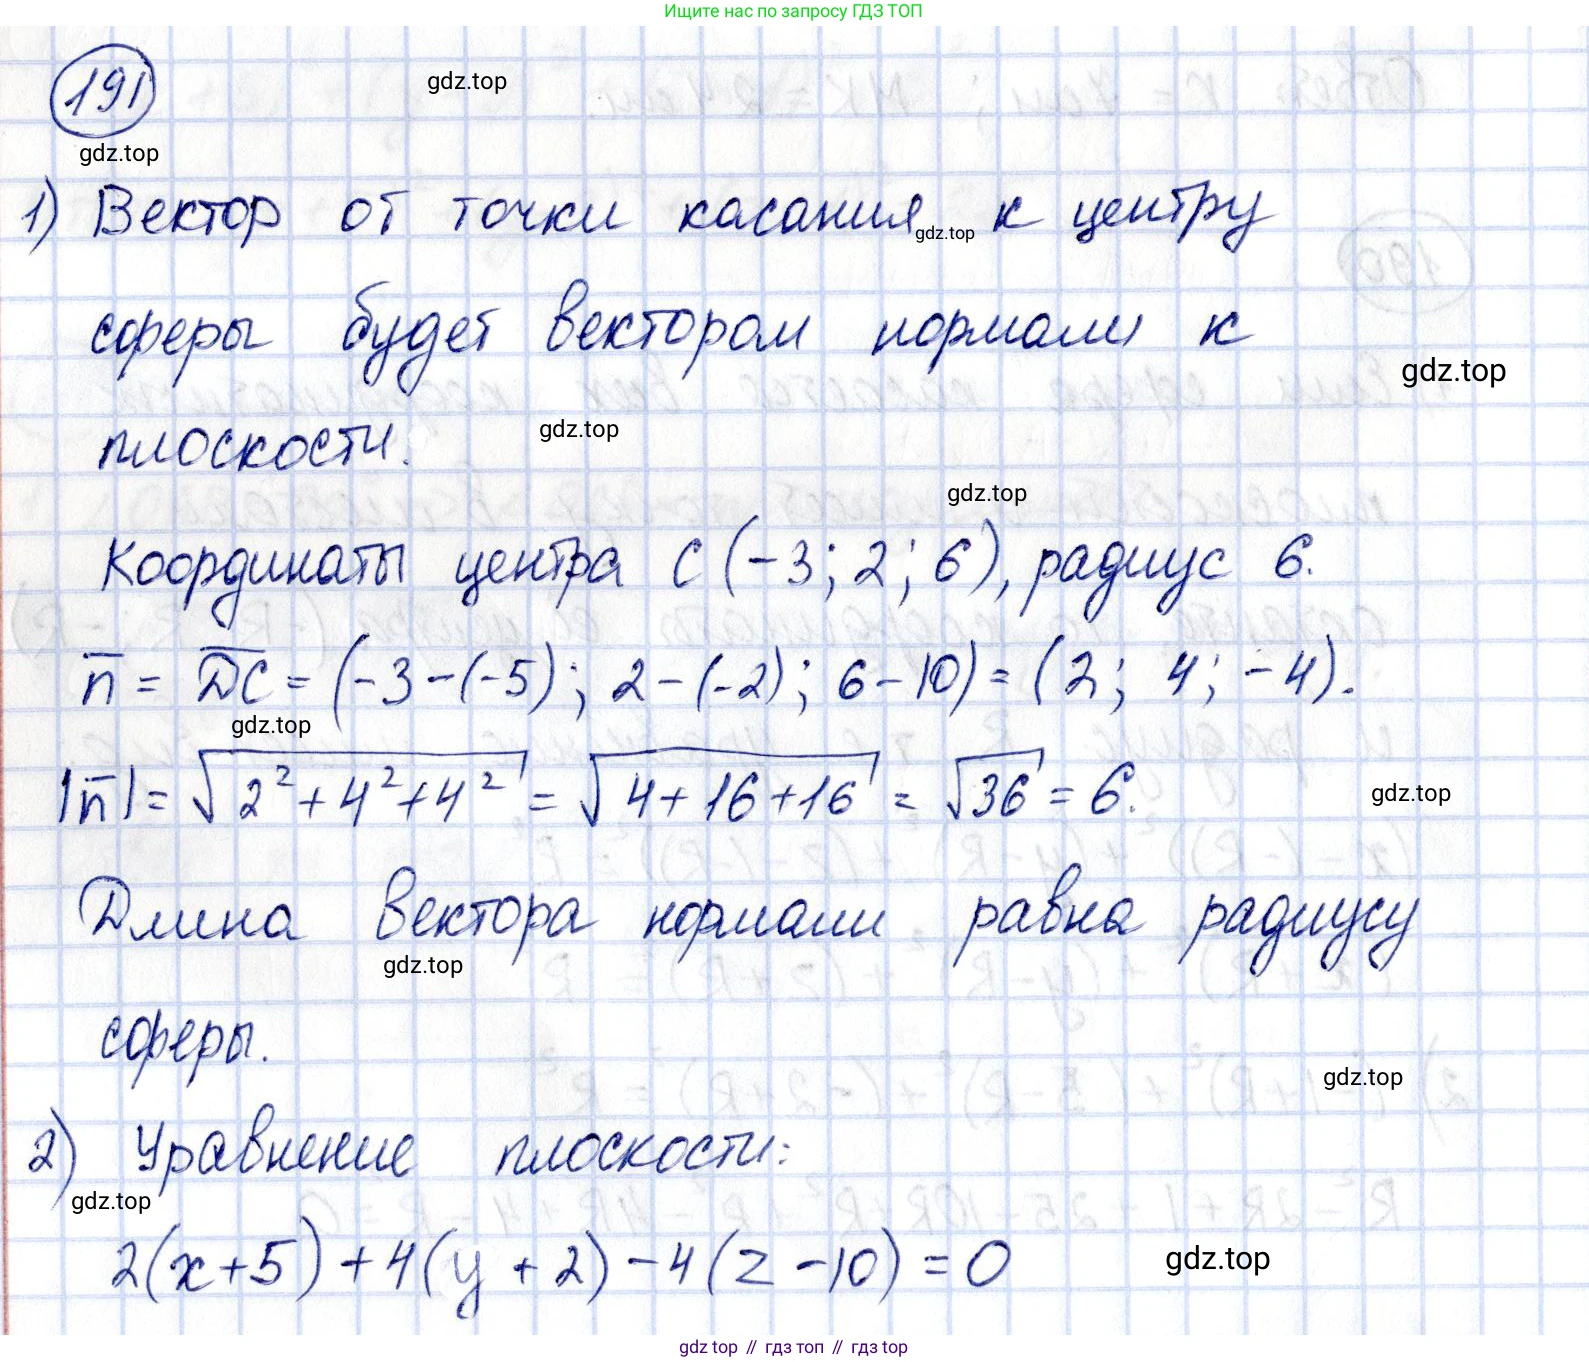 Ищите нас по запросу ГДЗ ТОП
191
gdz.top
gdz.top
1) Вектор от точки касания к центру
gdz.top
сферы будет вектором нормали к
gdz.top
плоскости.
gdz.top
gdz.top
Координаты центра C(-3; 2; 6), радиус 6.
n̅ = D̅C̅ = (-3-(-5); 2-(-2); 6-10) = (2; 4; -4).
gdz.top
|n̅| = √(2²+4²+4²) = √(4+16+16) = √36 = 6.
gdz.top
Длина вектора нормали равна радиусу
gdz.top
сферы.
gdz.top
2) Уравнение плоскости:
gdz.top
2(x+5)+4(y+2)-4(z-10)=0
gdz.top
gdz top // гдз топ // gdz top